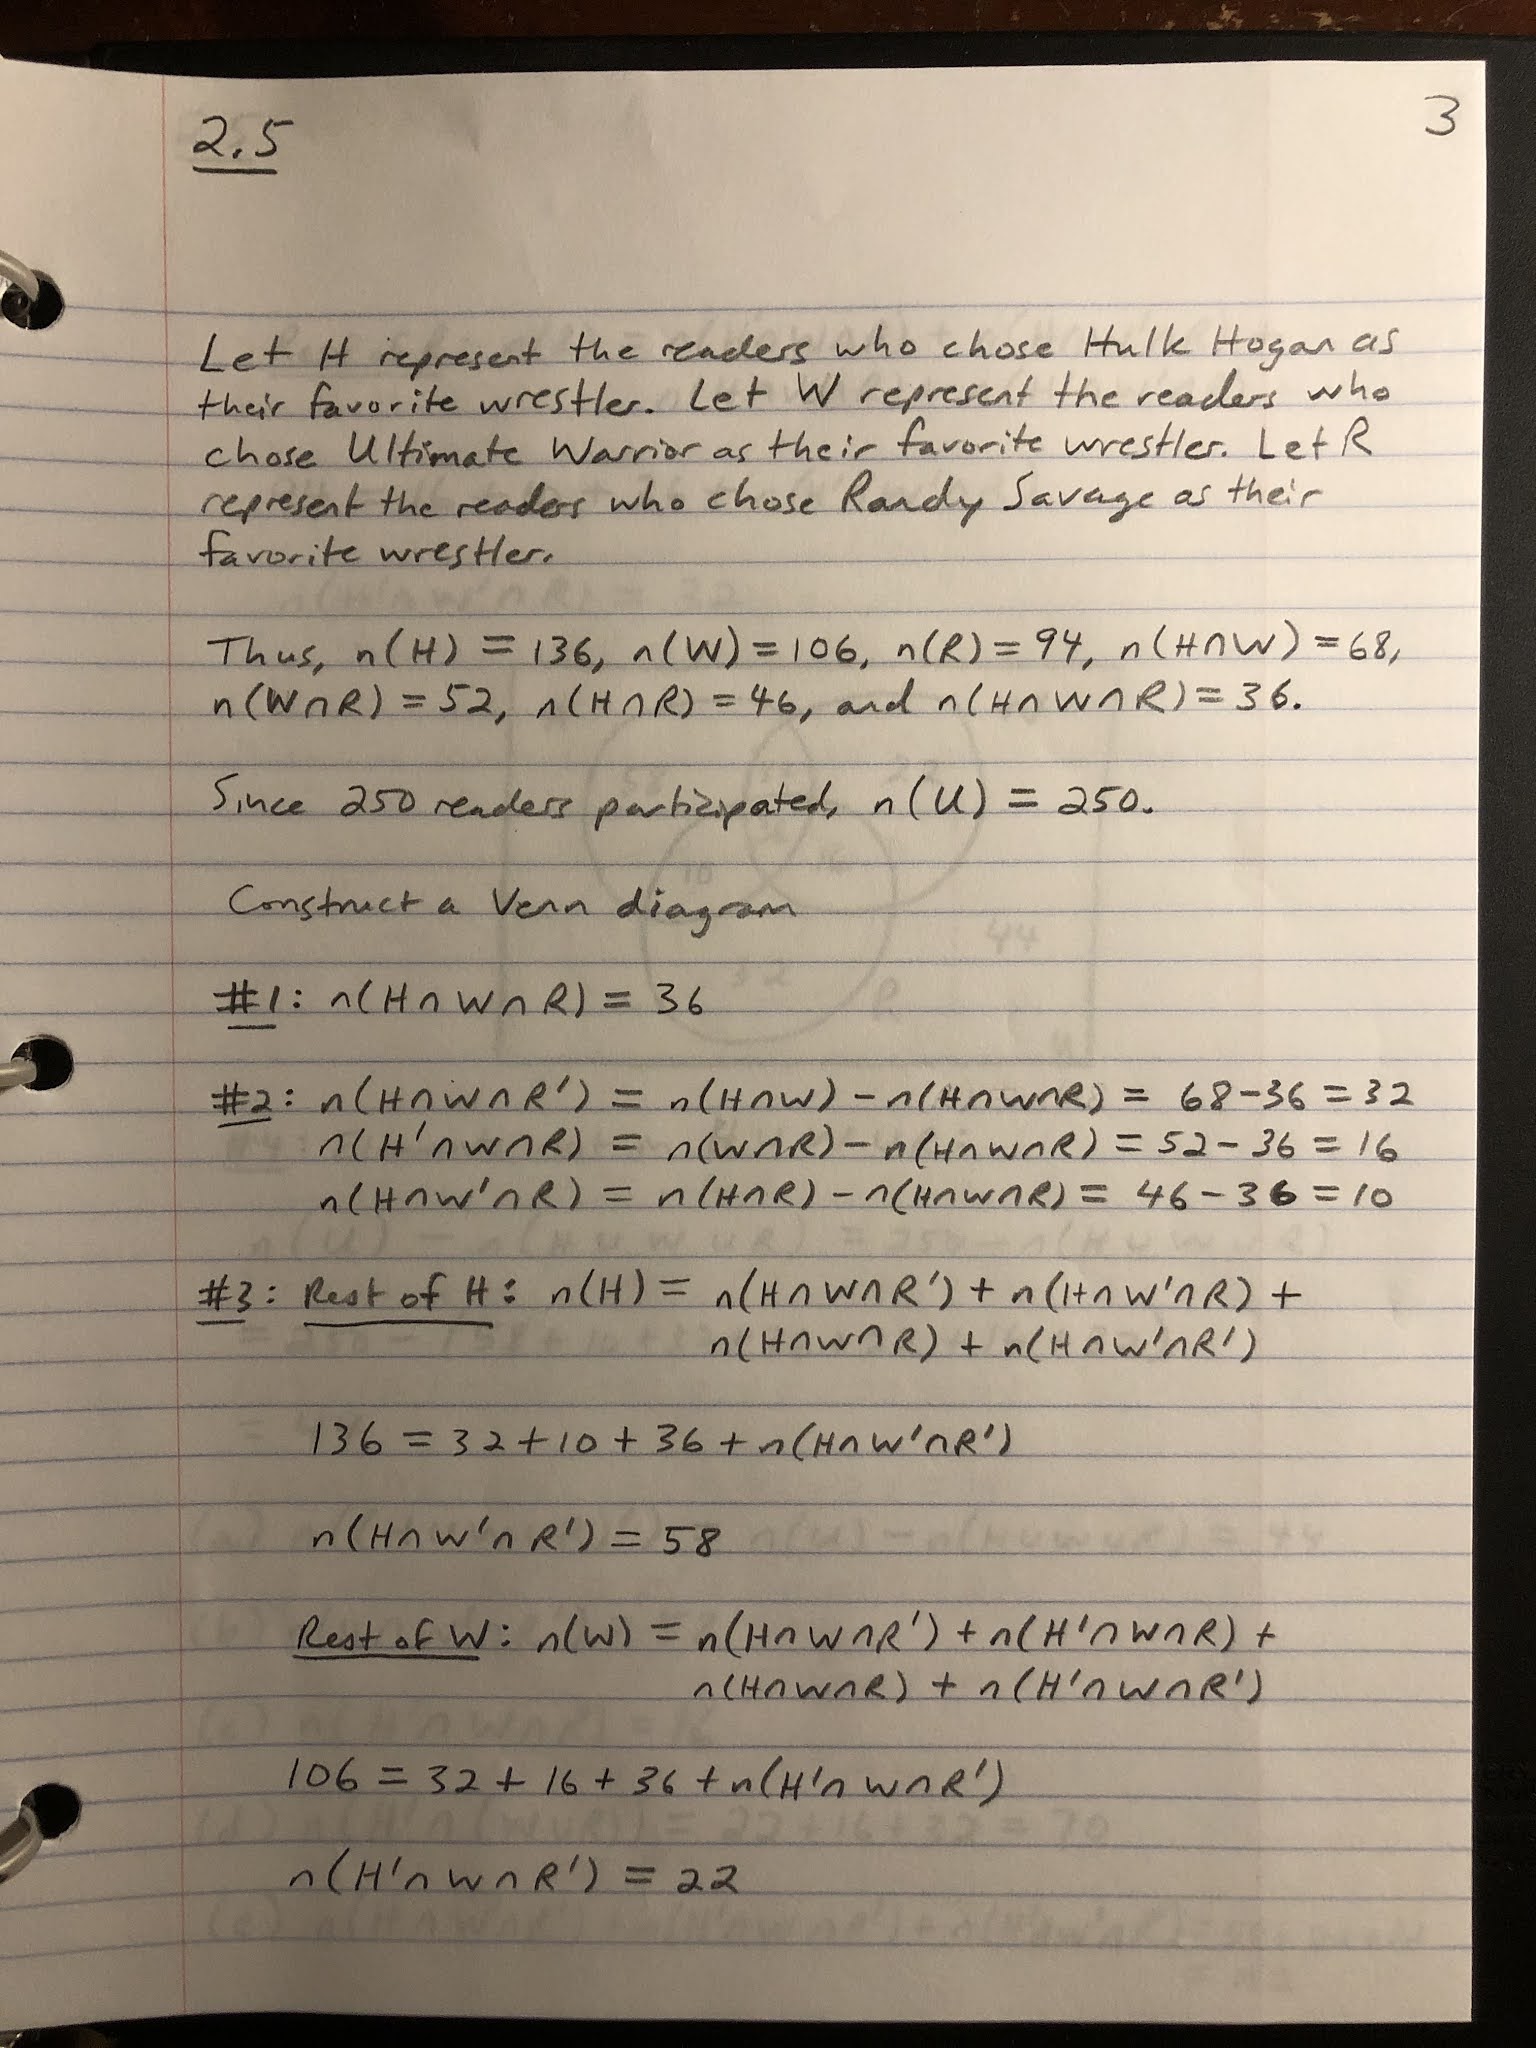 2.5
3
Let H represent the readers who chose Hulk Hogan as
their favorite wrestler. Let W represent the readers who
chose Ultimate Warrior as their favorite wrestler. Let R
represent the readers who chose Randy Savage as their
favorite wrestler.
Thus, n(H) = 136, n(W) = 106, n(R) = 94, n(H∩W) = 68,
n(W∩R) = 52, n(H∩R) = 46, and n(H∩W∩R) = 36.
Since 250 readers participated, n(U) = 250.
Construct a Venn diagram
#1: n(H∩W∩R) = 36
#2: n(H∩W∩R') = n(H∩W) - n(H∩W∩R) = 68-36 = 32
n(H'∩W∩R) = n(W∩R) - n(H∩W∩R) = 52-36 = 16
n(H∩W'∩R) = n(H∩R) - n(H∩W∩R) = 46-36 = 10
#3: Rest of H: n(H) = n(H∩W∩R') + n(H∩W'∩R) +
n(H∩W∩R) + n(H∩W'∩R')
136 = 32+10+36+n(H∩W'∩R')
n(H∩W'∩R') = 58
Rest of W: n(W) = n(H∩W∩R') + n(H'∩W∩R) +
n(H∩W∩R) + n(H'∩W∩R')
106 = 32+16+36+n(H'∩W∩R')
n(H'∩W∩R') = 22